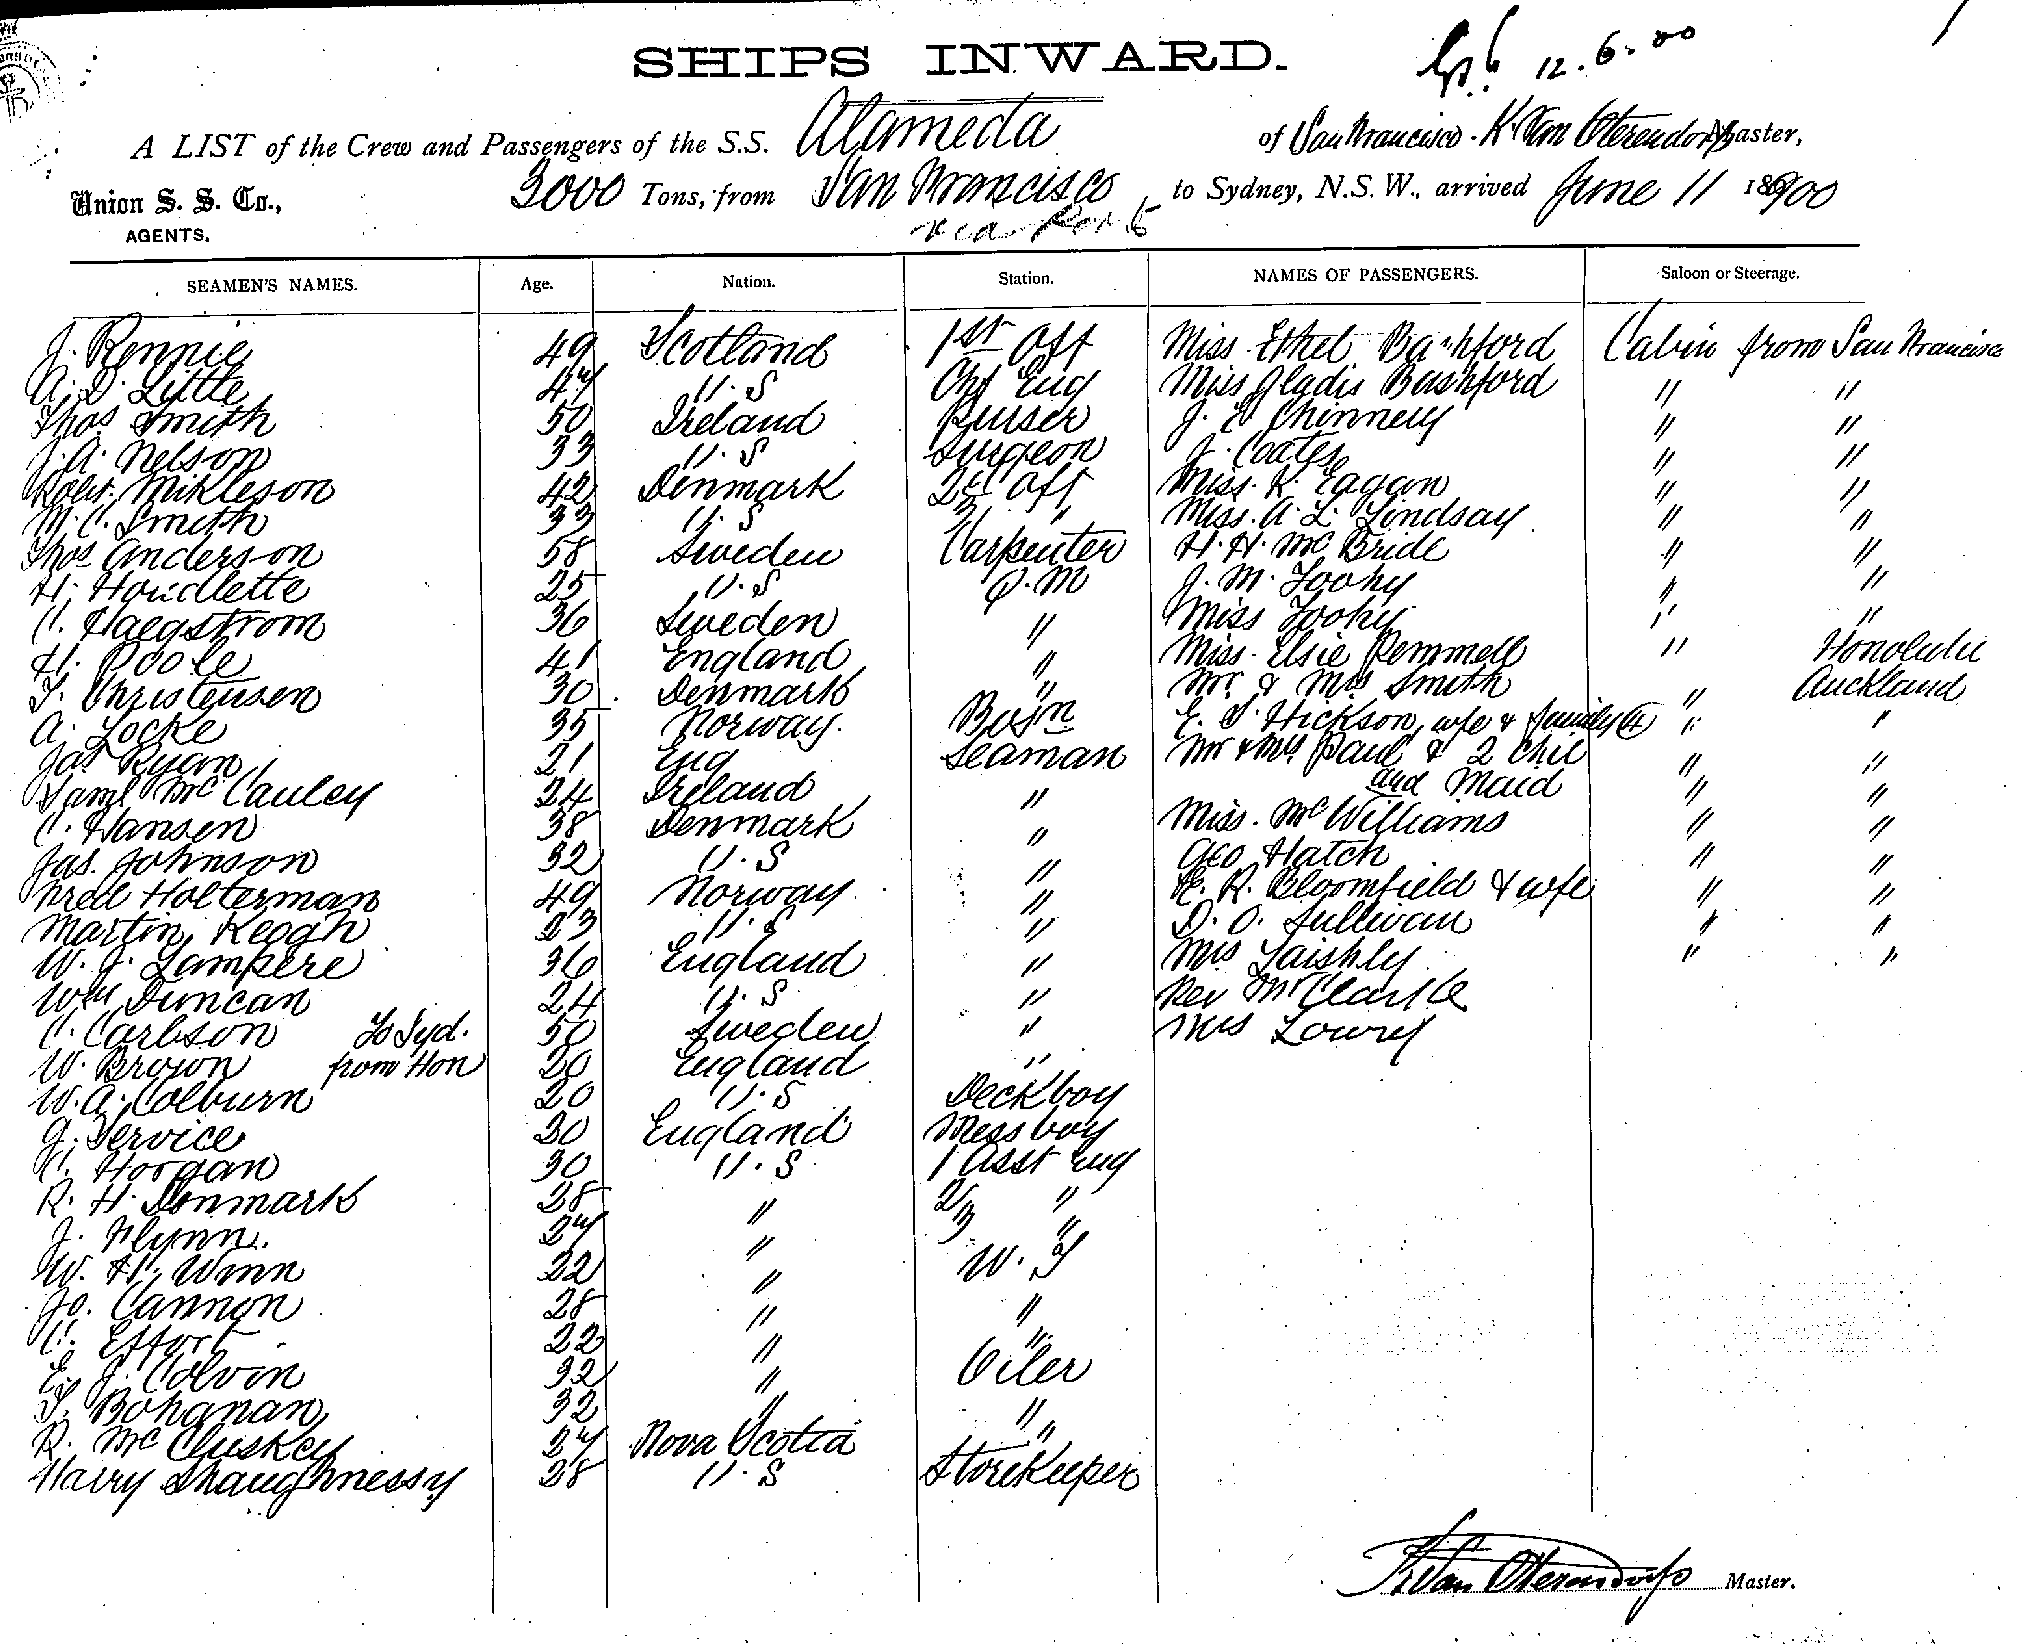 SHIPS INWARD.
12.6.00
A LIST of the Crew and Passengers of the S.S. Alameda of San Francisco. K Van Oterendorp Master,
Union S. S. Co., AGENTS.
3000 Tons, from San Francisco to Sydney, N.S.W., arrived June 11 1900
via Ports
SEAMEN'S NAMES. Age. Nation. Station. NAMES OF PASSENGERS. Saloon or Steerage.
J. Rennie 49 Scotland 1st Off Miss Ethel Bashford Cabin from San Francisco
A. D. Little 47 U.S Chf Eng Miss Gladis Bashford " "
Thos Smith 50 Ireland Purser J. E Chinnery " "
J. A. Nelson 33 U.S Surgeon J. Coates " "
Robt. Mikleson 42 Denmark 2d Off Miss. K. Eagan " "
M. C. Smith 33 U.S 3 " Miss. A. L. Lindsay " "
Thos Anderson 58 Sweden Carpenter H. H. McBride " "
H. Houdlette 25 U.S Q.M J. M. Toohy " "
C. Haegstrom 36 Sweden " Miss Toohy " "
H. Poole 41 England " Miss. Elsie Pemmell " Honolulu
F. Christensen 30 Denmark " Mr. & Mrs Smith " Auckland
A. Locke 35 Norway. Bosn E. S. Hickson, wfe & family (4) " "
Jas Ryan 21 Eng Seaman Mr & Mrs Paul & 2 Chil " "
Saml McCauley 24 Ireland " and Maid " "
C. Hansen 38 Denmark " Miss. McWilliams " "
Jas. Johnson 32 U.S " Geo Hatch " "
Fred Holterman 49 Norway " R. Bloomfield & wfe " "
Martin Keogh 23 U.S " D. O. Sullivan " "
W. J. Lampere 36 England " Mrs Laishly " "
Wm Duncan 24 U.S " Rev Clark
C. Carlson To Syd. 50 Sweden " Mrs Lowry
W. Brown from Hon 20 England "
W. A. Colburn 20 U.S Deckboy
J. Service 30 England Messboy
C. Horgan 30 U.S 1 Asst Eng
R. H. Denmark 28 " 2 "
J. Flynn. 27 " 3 "
W. H. Winn 22 " W. T
Jo. Cannon 28 " "
C. Effort 22 " "
E. J. Colvin 32 " Oiler
T. Bohanan 32 " "
R. McCluskey 27 Nova Scotia "
Harry Shaughnessy 28 U.S Storekeeper
K Van Oterendorp Master.